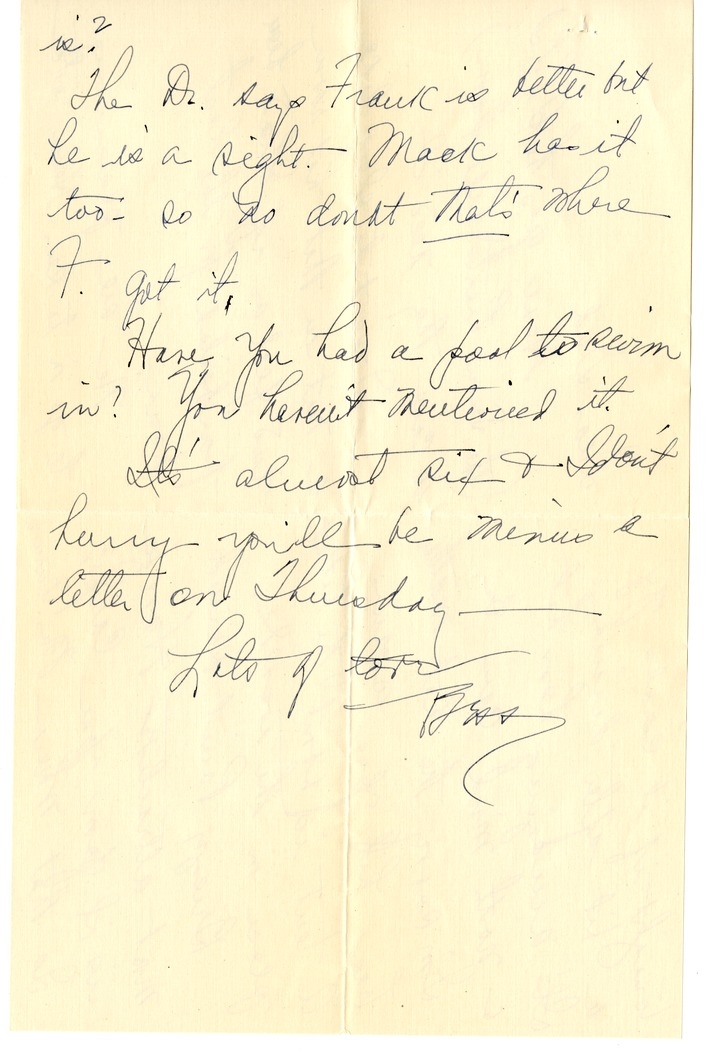 is?
The Dr. says Frank is better but
he is a sight. Mack has it
too - so no doubt that's where
F. got it.
Have you had a pool to swim
in? You haven't mentioned it.
It's almost six & I don't
hurry you'll be minus a
letter on Thursday —
Lots of love
Bess